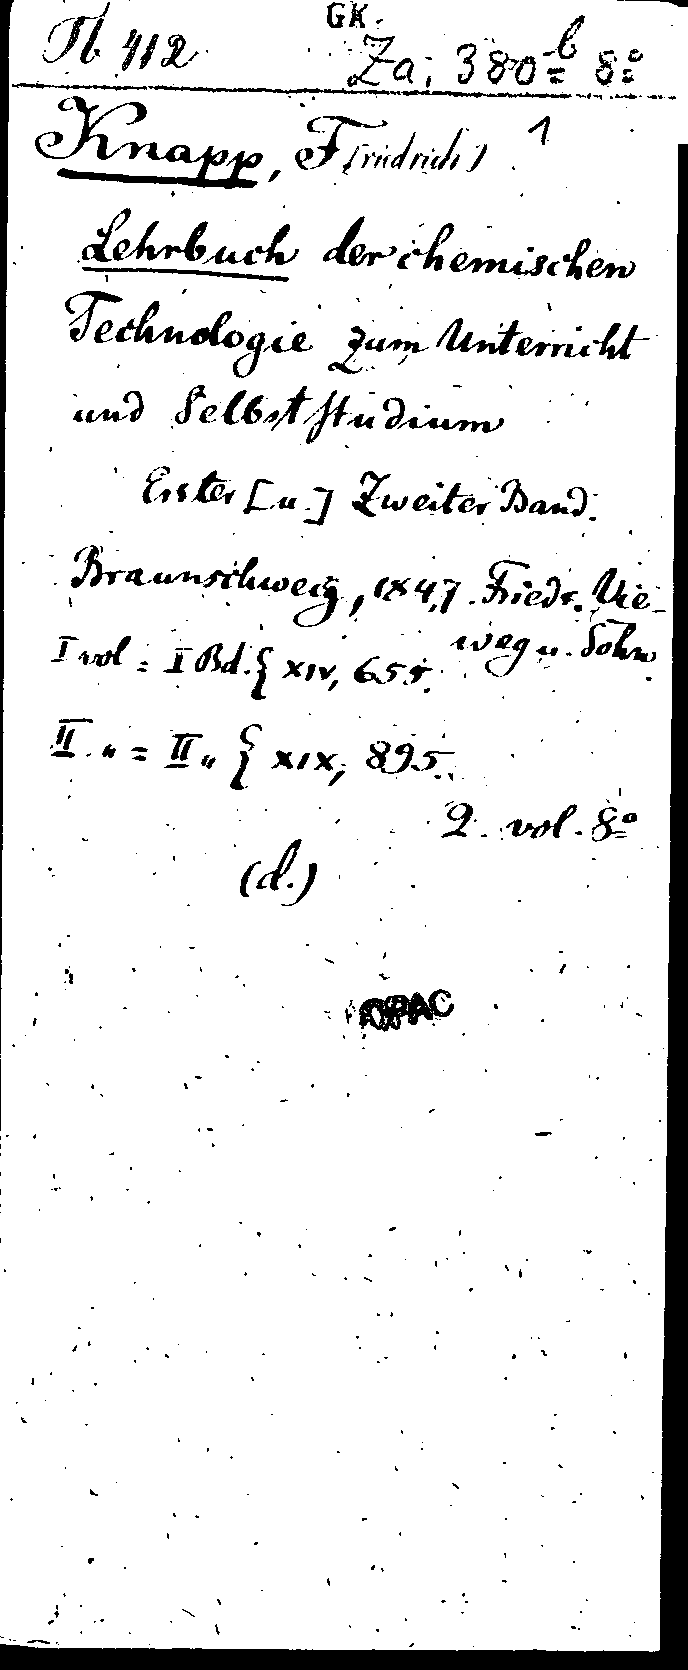 GK.
Tb 412 Za; 380 b 8º
1
Knapp, F(riedrich)
Lehrbuch der chemischen
Technologie zum Unterricht
und Selbststudium
Erster [u.] Zweiter Band.
Braunschweig, 1847. Friedr. Vie-
weg u. Sohn.
I vol = I Bd. { XIV, 655.
II. „ = II „ { XIX, 895.
2. vol. 8º
(d.)
OPAC